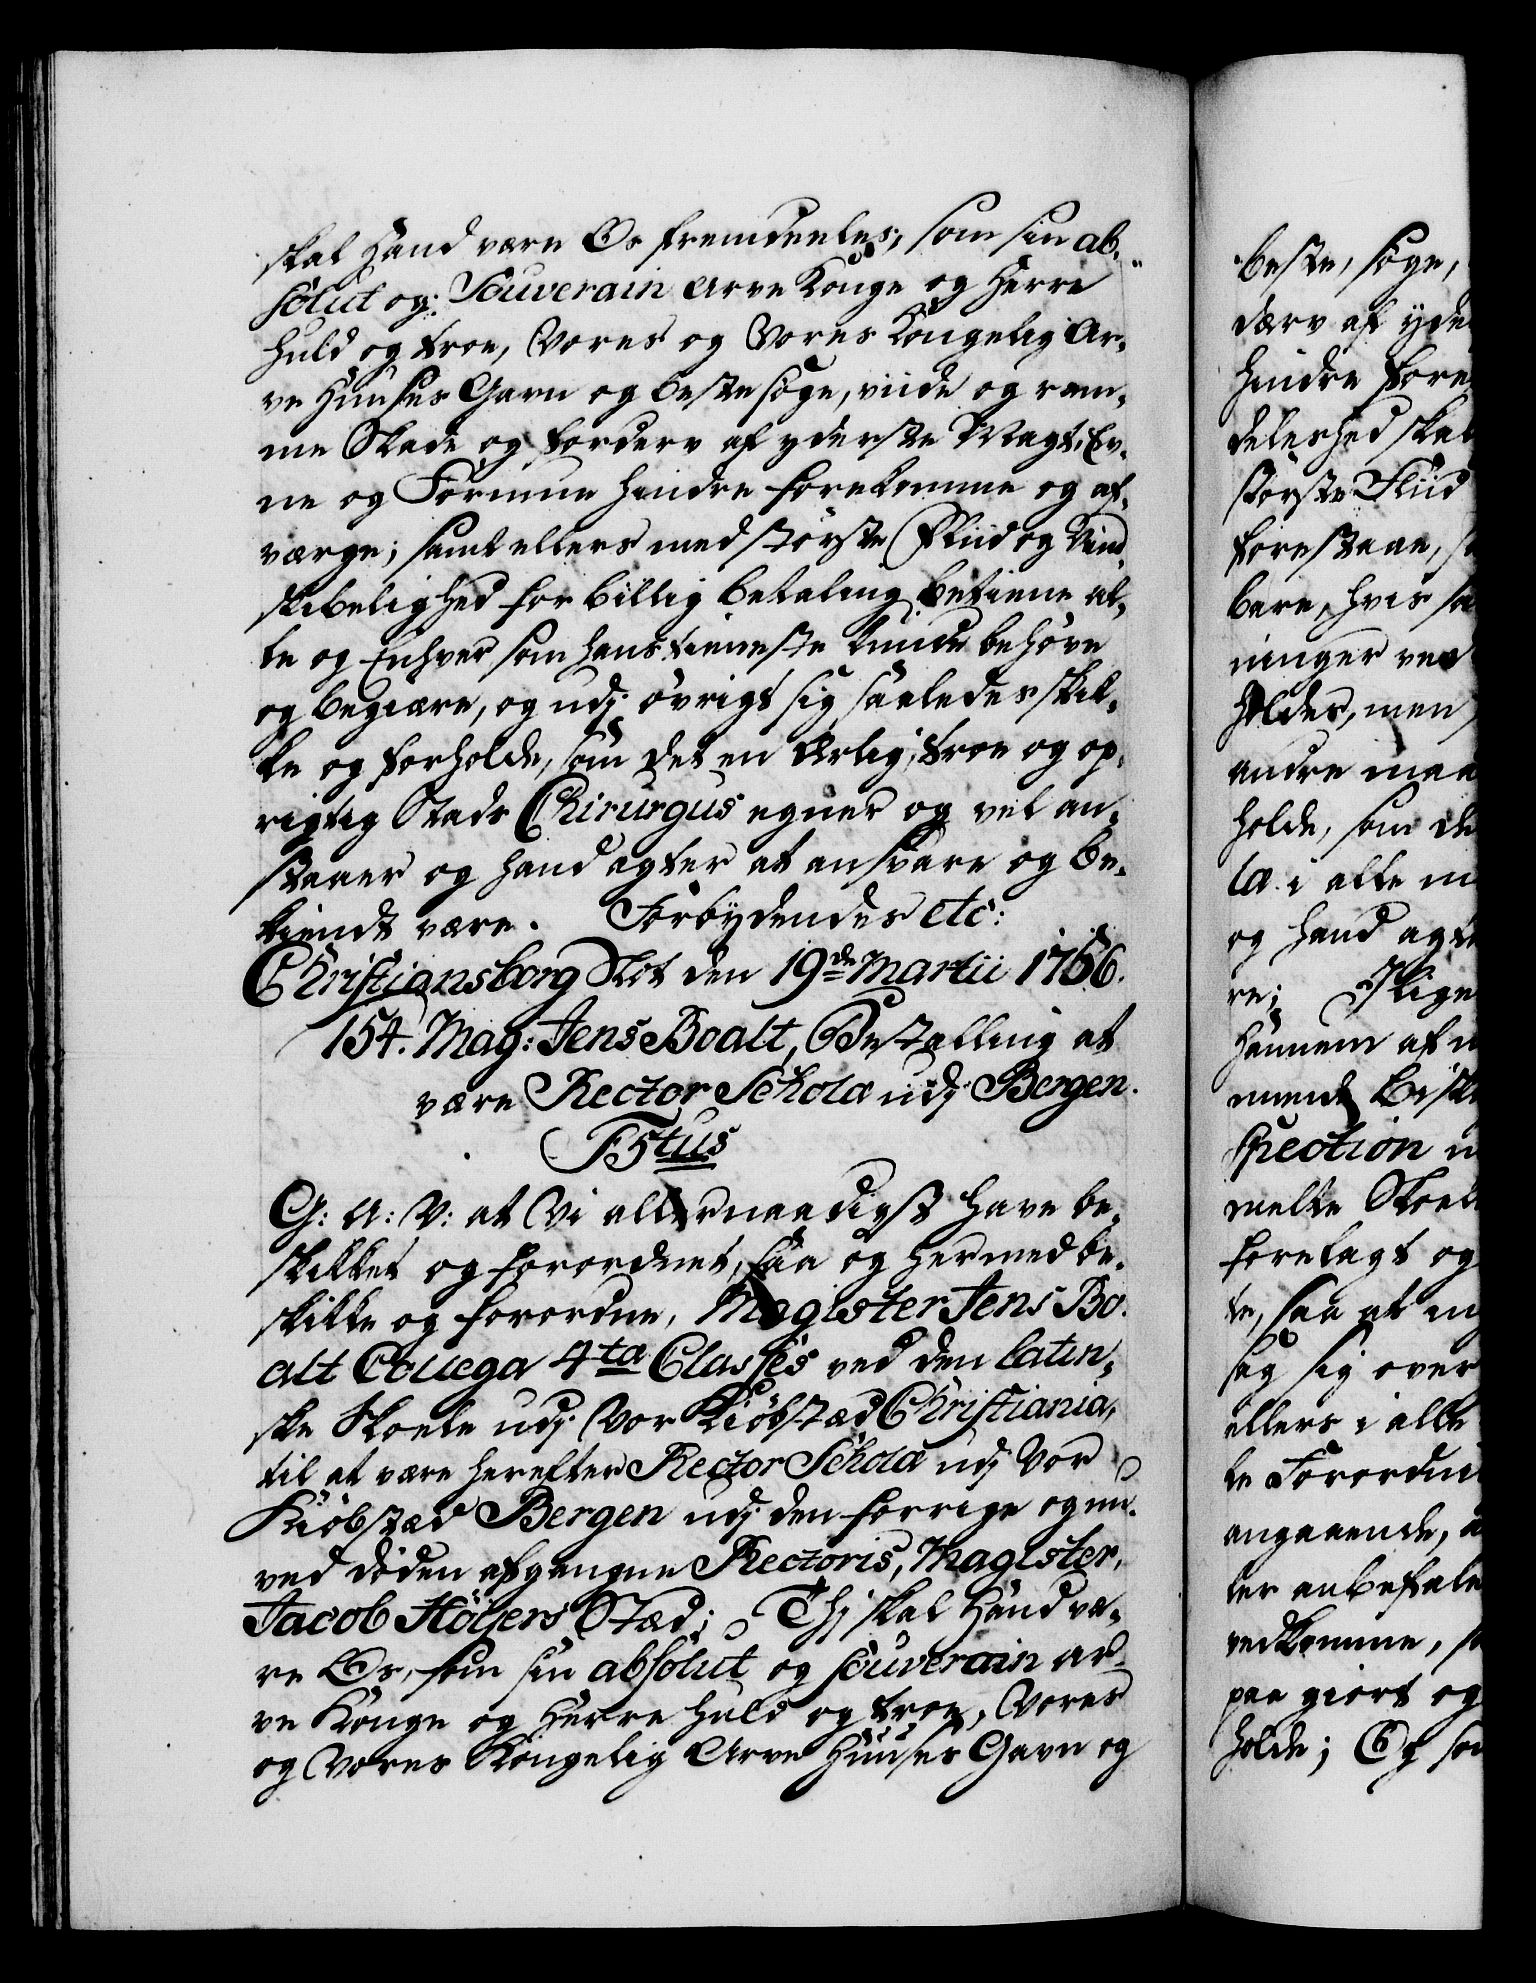 skal Hand være Os fremdeeles, som sin ab,,
solut og Souverain Arve Konge og Herre
huld og troe, Vores og Vores Kongelig Ar-
ve Huuses Gavn og beste søge, viide og ram-
me Skade og fordærv af yderste Magt, Ev-
ne og Formue hindre forekomme og af-
værge; samt ellers med største Fliid og Vind-
skibelighed for billig betaling betiene al-
le og Enhver som hans tieneste kunde behøve
og begiære, og udj øvrigt sig saaledes skik-
ke og forholde, som det en Ærlig, troe og op-
rigtig Stads Chirurgus egner og vel an-
staaer og hand agter at ansvare og be-
kiendt være. Forbydendes etc:
Christiansborg Slot den 19de Martii 1756.
154. Mag: Jens Boalt, Bestalling at
være Rector Scholæ udj Bergen.
F5tus
G: A: V: at Vi allernaadigst have be-
skikket og forordnet, saa og hermed be-
skikke og forordne, Magister Jens Bo-
alt Collega 4ta Classes ved den latin-
ske Skoele udj Vor Kiøbstæd Christiania,
til at være herefter Rector Scholæ udj Vor
Kiøbstæd Bergen udj den forrige og nu
ved døden afgangne Rectoris, Magister,
Jacob Höyers Stæd; Thj skal Hand væ-
re Os, som sin absolut og souverain ar-
ve Konge og Herre huld og troe, Vores
og Vores Kongelig Arve Huuses Gavn og
beste, søge,
dærv af yde
hindre fore
deleshed skal
største Fliid
forestaae, s
bare, hvis sa
ninger ved
holdes, men
andre maa
holde, som de
læ i alle m
og hand agte
re; Slige
Hannem af n
mende Bisk
spection u
melte Skoel
forelagt og
te, saa at in
sag sig over
ellers i alle
te Forordni
angaaende, a
ler anbefale
vedkomme, s
paa giort og
holde; Og so